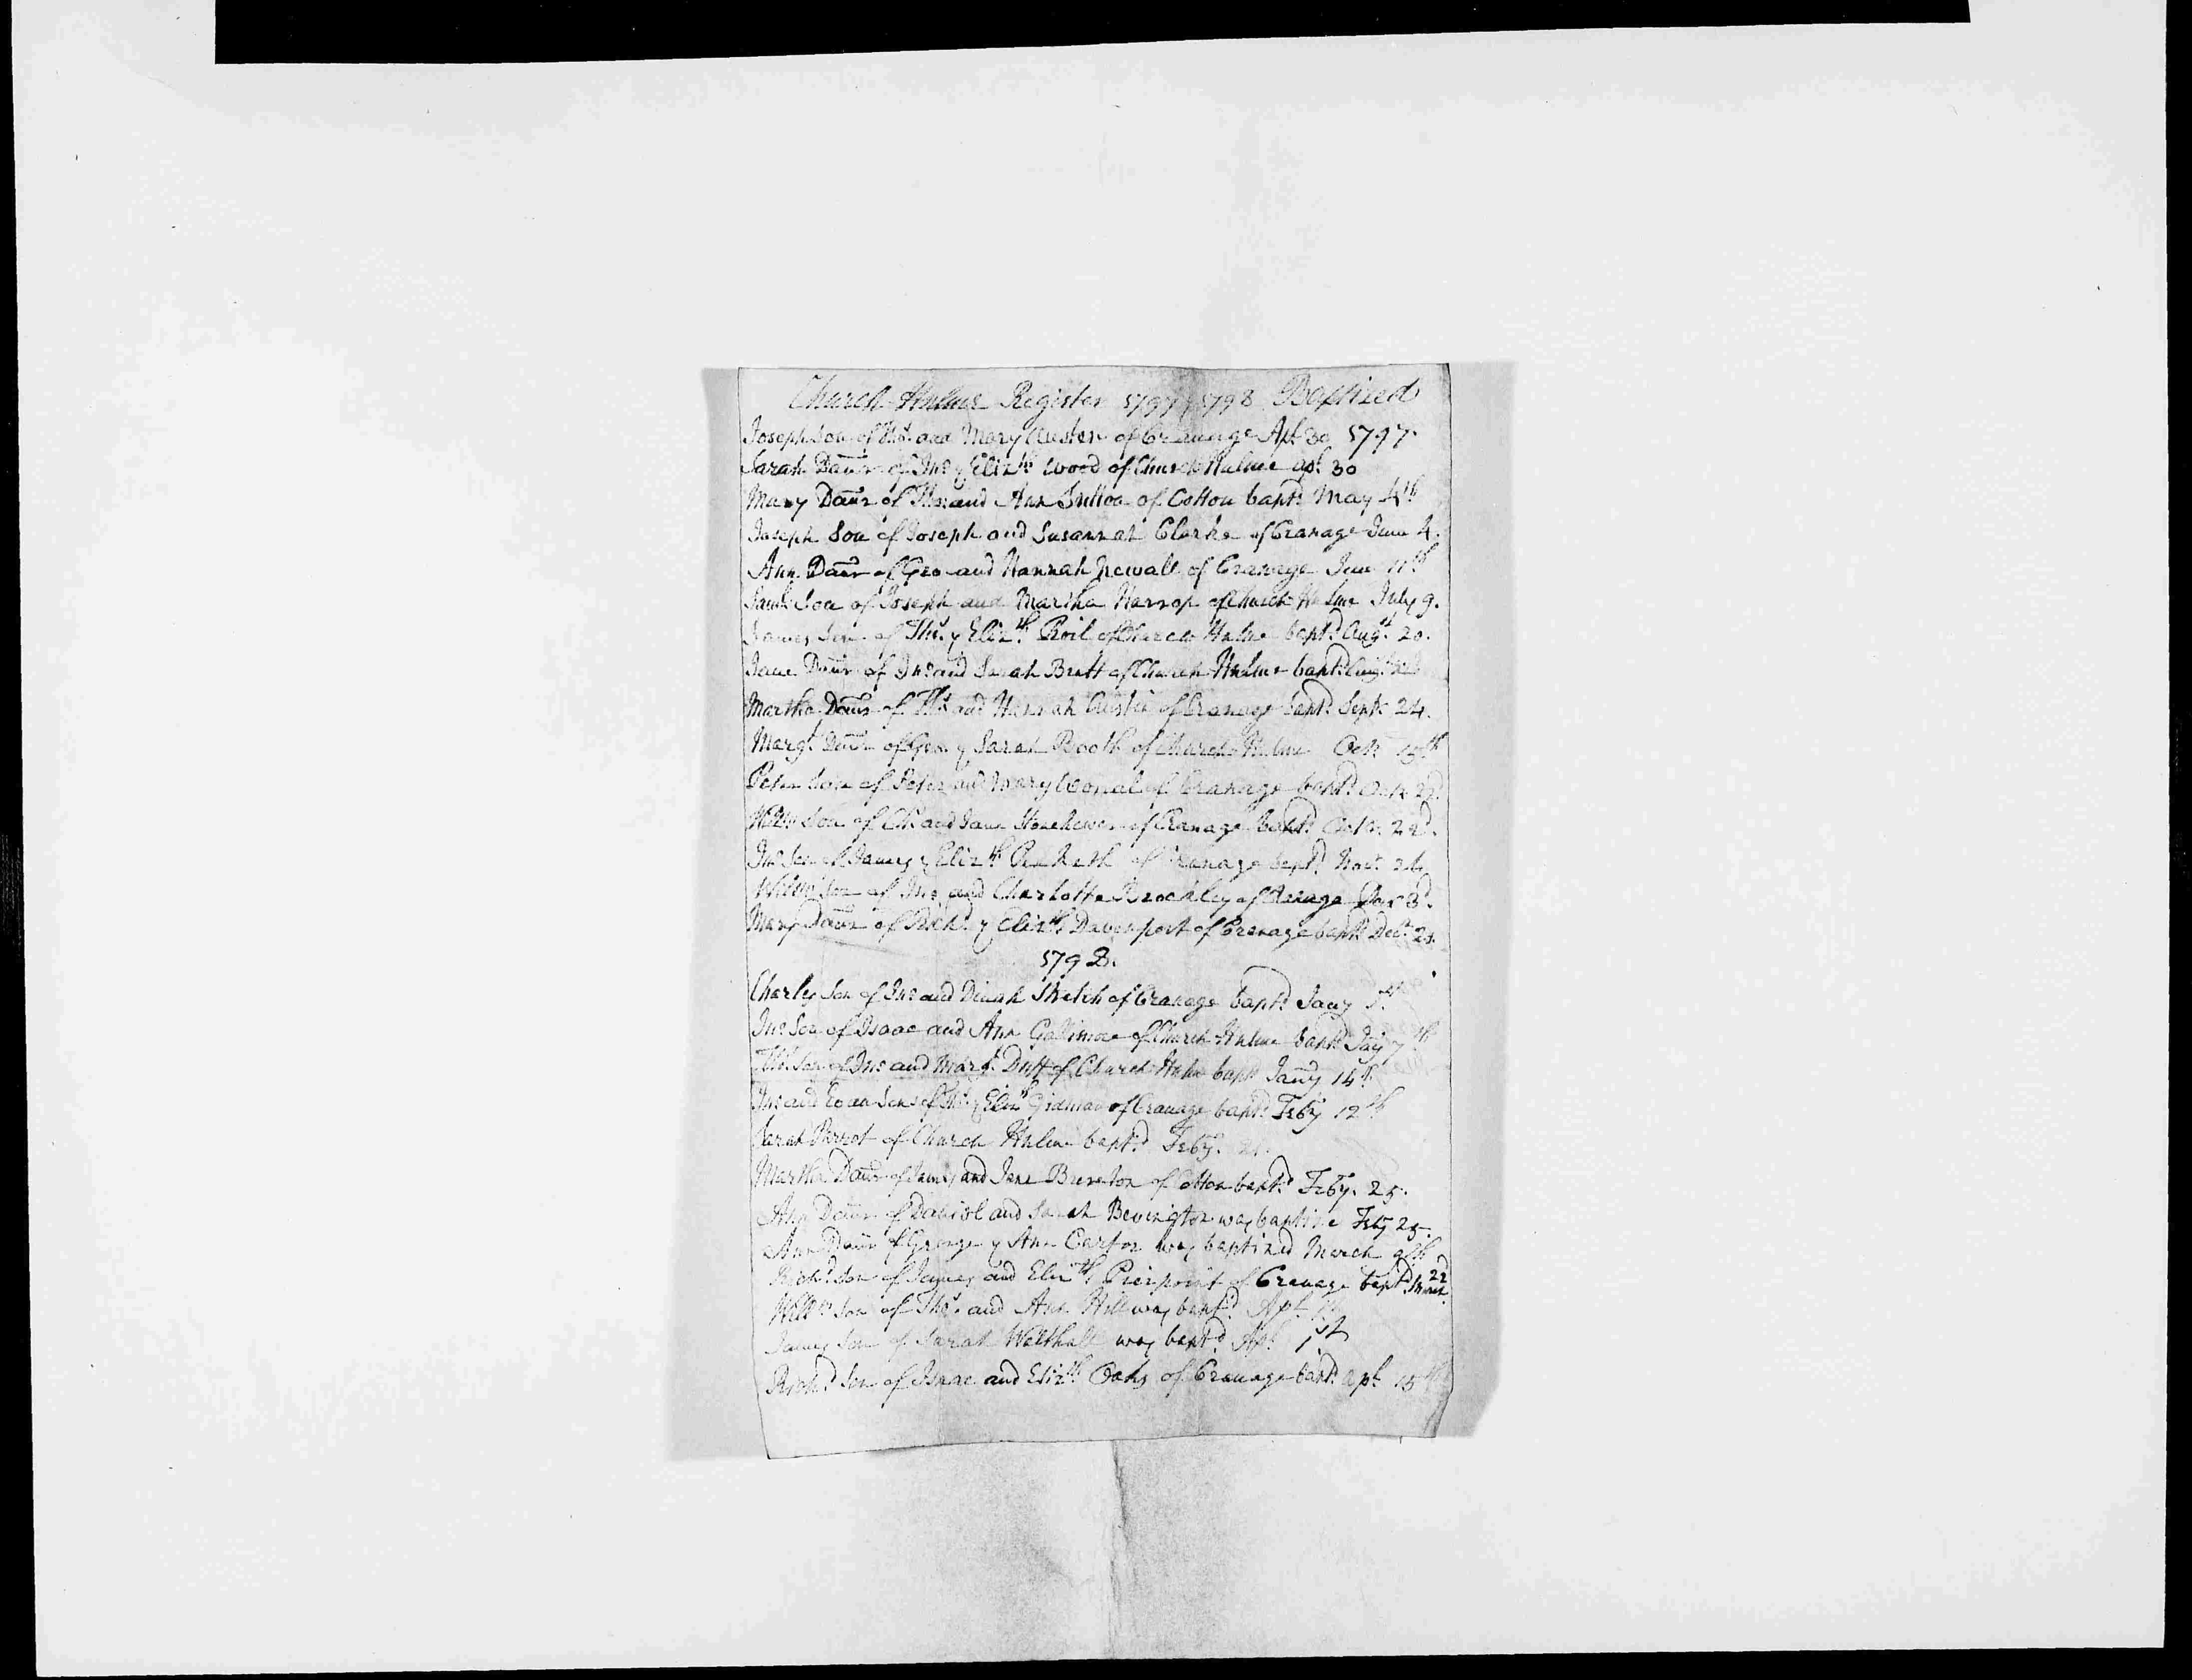 Church Hulme Register 1797 1798 Baptized
Joseph Son of Thos. and Mary Austen of Cranage Apl. 30 1797.
Sarah Daur of Jno. & Elizth. Wood of Church Hulme apl. 30
Mary Daur of Thos. and Ann Sutton of Cotton bapt'd May 4th
Joseph Son of Joseph and Susannah Clarke of Cranage June 4.
Ann Daur of Geo and Hannah Newall of Cranage June 11th
Saml. Son of Joseph and Martha Harrop of Church Hulme July 9.
James Son of Thos. & Elizth. of Church Hulme bapt'd Augt. 20.
Jane Daur of Jno. and Sarah Brett of Church Hulme bapt'd Augt.
Martha Daur of Thos and Hannah Austin of Cranage bapt'd Septr. 24.
Margt. Daur of Geo. & Sarah Booth of Church Hulme Octr. 15th
Peter Son of Peter and Mary of Cranage bapt'd Octr. 22d.
Willm Son of and Jane Stonehewer of Cranage bapt'd Octr. 22d.
Jno. Son of James & Elizth. of Cranage bapt'd Novr.
Willm Son of Jno. and Charlotte Brockley of Cranage 3d.
Mary Daur of Richd. & Elizth. Davenport of Cranage bapt'd Decr.
1798.
Charles Son of Jno and Dinah Sketch of Cranage bapt'd Jany
Jno Son of Isaac and Ann Gallimore of Church Hulme bapt'd Jay 7th
Thos. Son of Jno and Margt. of Church Hulme bapt Jany 14th
Jno and Sons of Thos. & Elizth Gidman of Cranage bapt'd Feby 12th
Sarah Parrot of Church Hulme bapt'd Feby.
Martha Daur of James and Jane Brereton of Cotton bapt'd Feby. 25.
Ann Daur of Daniel and Sarah Bevington was baptize Feby 25.
Ann Daur of George & Ann Carter was baptized March 9th
Richd Son of James and Elizth Pierpoint of Cranage bapt'd March 22
Willm Son of Thos. and Ann Hill was bapt'd Apl.
James Son of Sarah Walthall was bapt'd Apl. 1st
Richd Son of Isaac and Elizth. Oaks of Cranage bapt'd apl. 15th